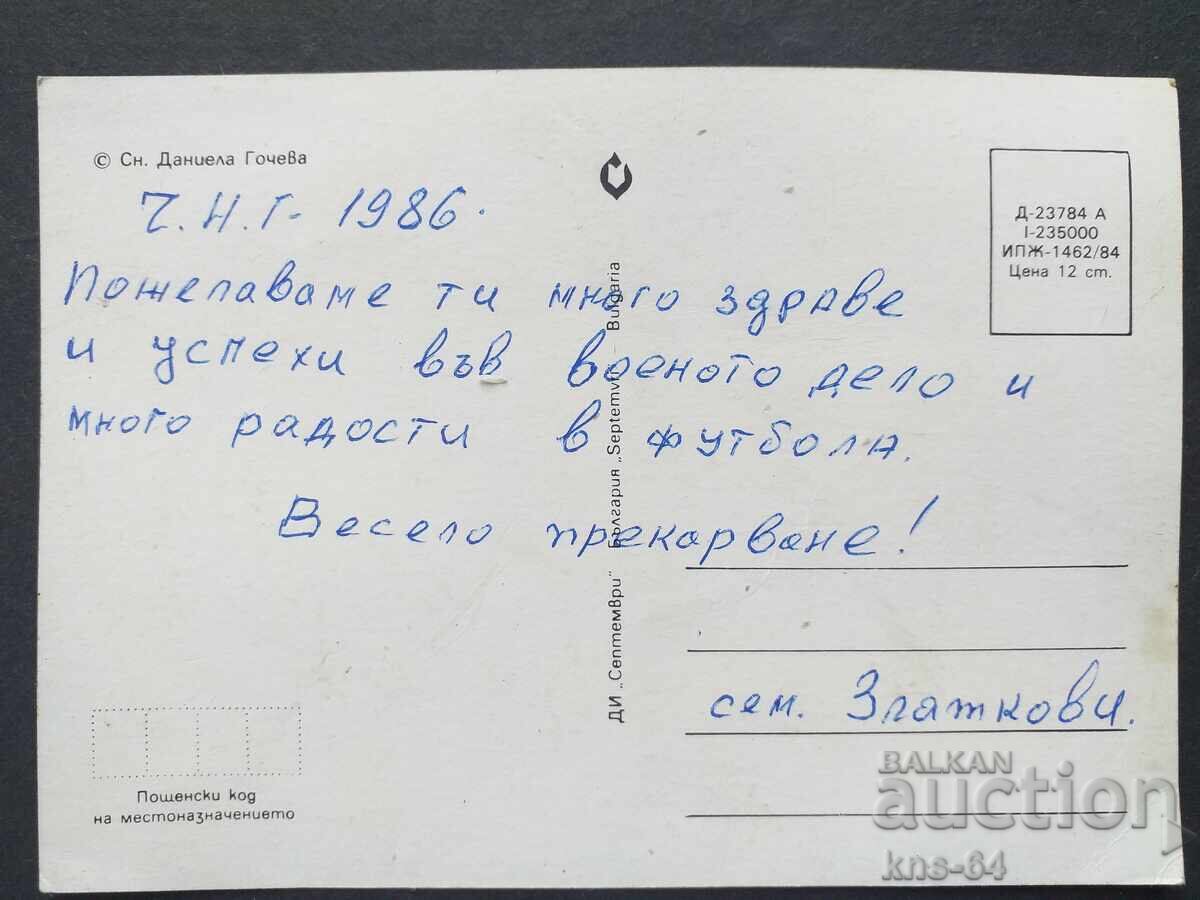 © Сн. Даниела Гочева
Ч.Н.Г- 1986.
Пожелаваме ти много здраве
и успехи във военото дело и
много радости в футбола.
Весело прекарване!
сем. Златкови.
Д-23784 А
I-235000
ИПЖ-1462/84
Цена 12 ст.
ДИ „Септември" България „Septemvri" Bulgaria
Пощенски код
на местоназначението
BALKAN
auction
kns-64